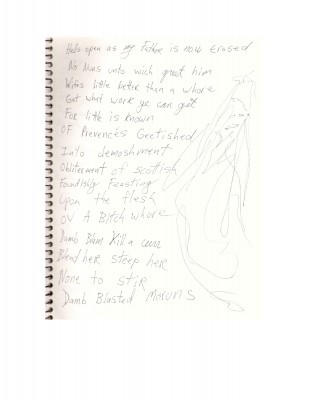 Hells open as my Father is now Erased
No Nuns unto wich greet him
Witns little better than a whore
Get what work ye can get
For litle is known
OF Prevences Geetished
Into demoshment
Obliterment of scottish
Foundishly Feasting
upon the flesh
OV A Bitch whore
Damb Blam Kill a
Blend her steep her
None to stir
Damb Blasted Moruns